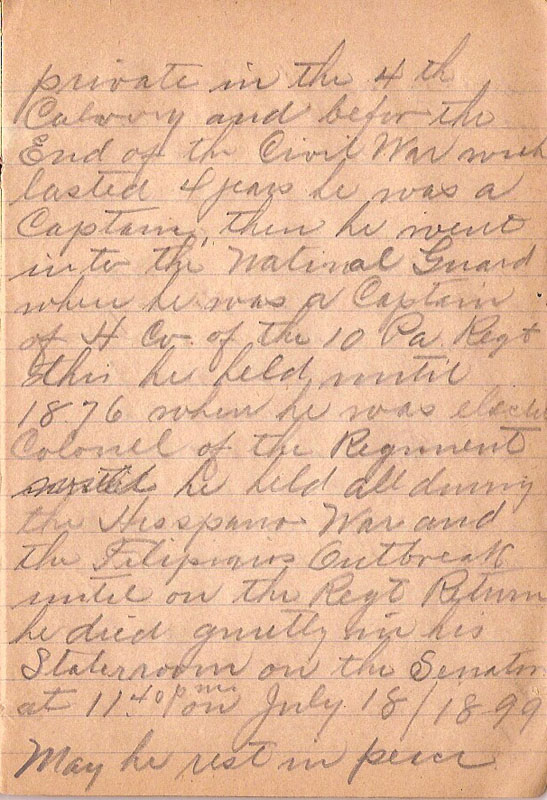 private in the 4 th
Calvary and befor the
End of the Civil War wich
lasted 4 years he was a
Captain, then he went
into the National Guard
when he was a Captain
of H Co. of the 10 Pa Regt
this he held until
1876 when he was elected
Colonel of the Regiment
he held all during
the Hisspano War and
the Filipinos Outbreak
until on the Regt Return
he died quietly in his
Stateroom on the Senator
at 11.40 pm on July 18/1899
May he rest in peace